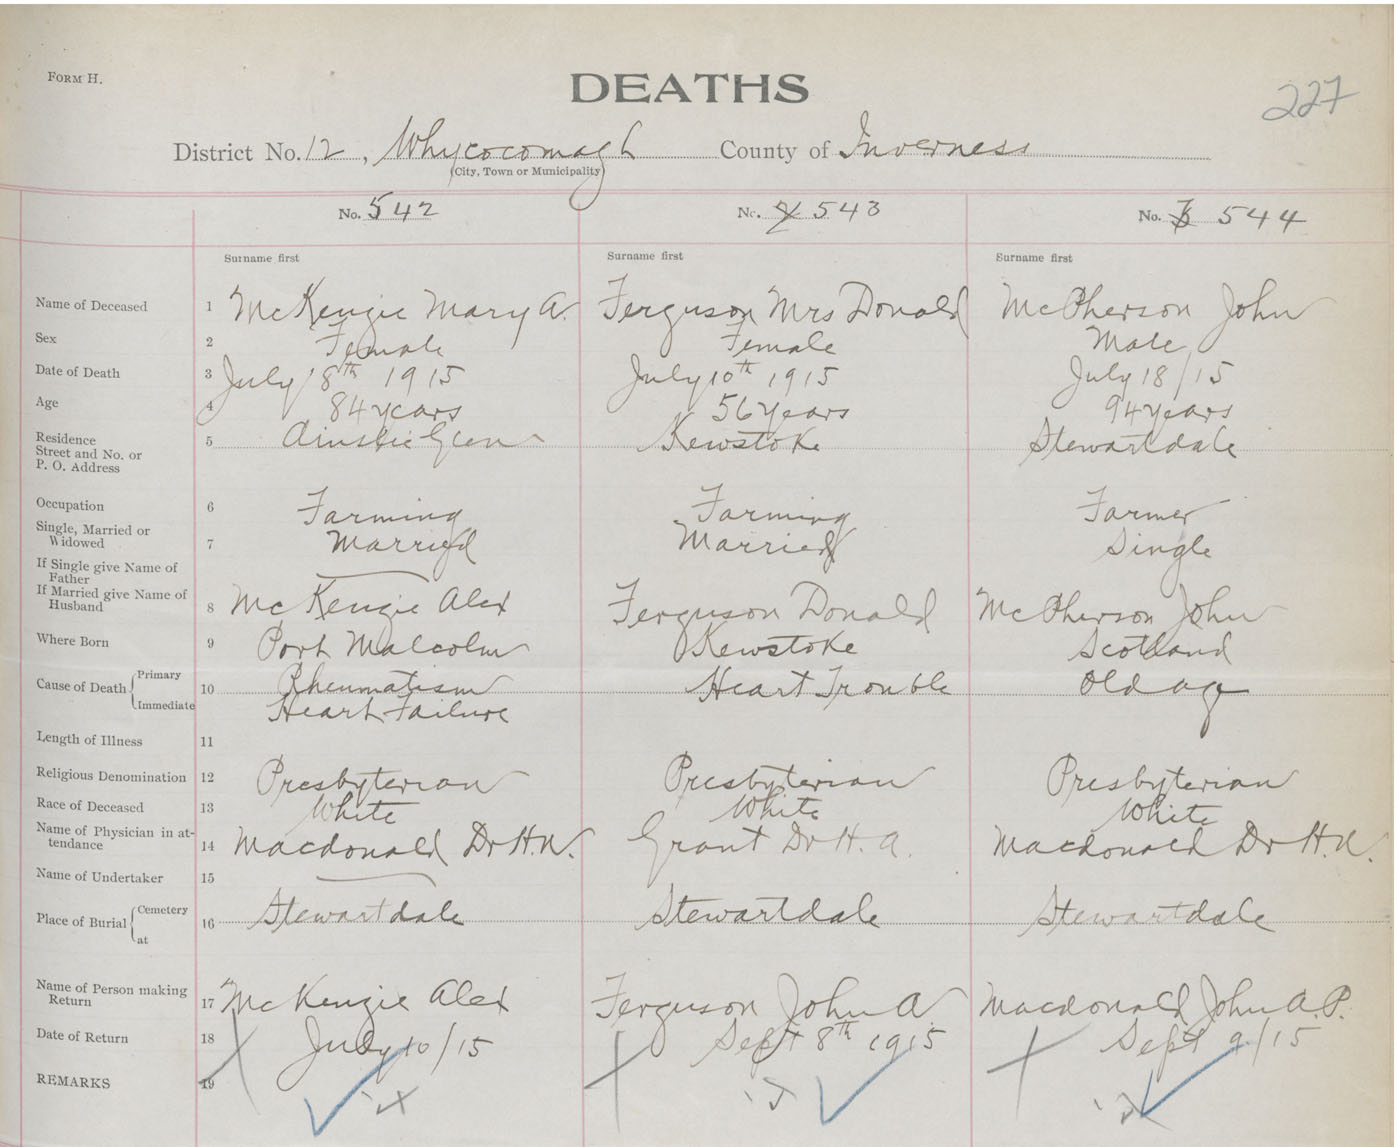 FORM H.
DEATHS
227
District No. 12, Whycocomagh County of Inverness
(City, Town or Municipality)
No. 542 No. 2 543 No. 3 544
Surname first Surname first Surname first
Name of Deceased 1 McKenzie Mary A. Ferguson Mrs Donald McPherson John
Sex 2 Female Female Male
Date of Death 3 July 8th 1915 July 10th 1915 July 18/15
Age 4 84 years 56 years 94 years
Residence
Street and No. or
P. O. Address 5 Ainslie Glen Kewstoke Stewartdale
Occupation 6 Farming Farming Farmer
Single, Married or
Widowed 7 Married Married Single
If Single give Name of
Father
If Married give Name of
Husband 8 McKenzie Alex Ferguson Donald McPherson John
Where Born 9 Port Malcolm Kewstoke Scotland
Cause of Death Primary 10 Rheumatism Heart Trouble Old age
Immediate Heart Failure
Length of Illness 11
Religious Denomination 12 Presbyterian Presbyterian Presbyterian
Race of Deceased 13 White White White
Name of Physician in at-
tendance 14 Macdonald Dr H.N. Grant Dr H. A. Macdonald Dr H.N.
Name of Undertaker 15
Place of Burial Cemetery 16 Stewartdale Stewartdale Stewartdale
at
Name of Person making
Return 17 McKenzie Alex Ferguson John A Macdonald John A. P.
Date of Return 18 July 10/15 Sept 8th 1915 Sept 9/15
REMARKS 19